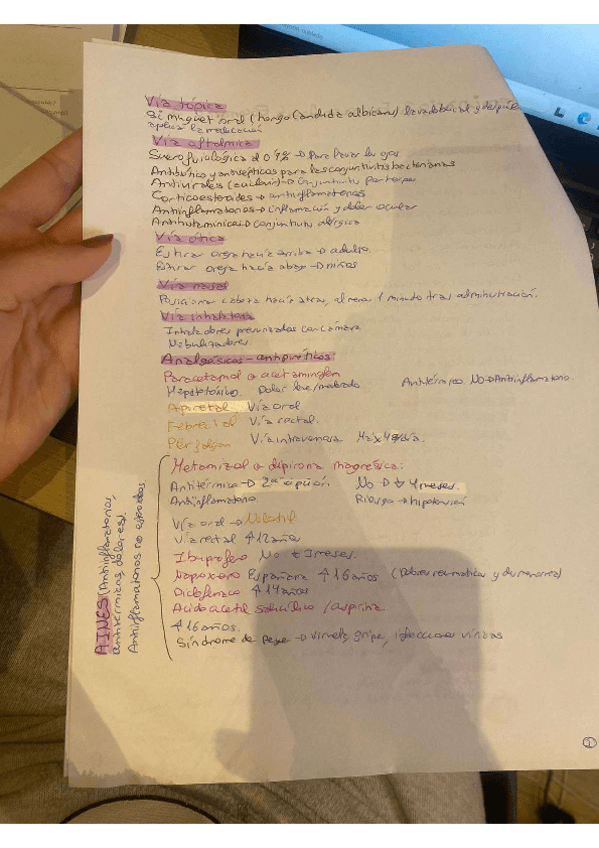 Vía tópica
Si muguet oral (hongo Candida albicans) lavado bucal y después
aplicar la medicación
Vía oftálmica
Suero fisiológico al 0'9% → Para lavar los ojos
Antibiótico y antisépticos para las conjuntivitis bacterianas
Antivirales → conjuntivitis por herpes
Corticoesteroides → antiinflamatorios
Antiinflamatorios → inflamación y dolor ocular
Antihistamínicos → conjuntivitis alérgica
Vía ótica
Estirar oreja hacia arriba → adulto.
Estirar oreja hacia abajo → niños
Vía nasal
Posicionar cabeza hacia atras, al menos 1 minuto tras administración.
Vía inhalatoria
Inhaladores presurizados con cámara
Nebulizadores
Analgésicos - antipiréticos
Paracetamol o acetaminofén
Hepatotóxico Dolor leve/moderado Antitérmico No → Antiinflamatorio.
Apiretal Vía oral
Febrectal Vía rectal.
Perfalgan Vía intravenosa Máx 4g/día.
AINES (Antiinflamatorios, antitérmicos, dolores).
Antiinflamatorios no esteroideos
Metamizol o dipirona magnésica:
Antitérmico → 2ª opción. No → ↓ 4 meses.
Antiinflamatorio Riesgo → hipotensión
Vía oral → Nolotil
Vía rectal ↑ 12 años
Ibuprofeno No ↓ 3 meses.
Naproxeno España ↑ 16 años (Dolores reumáticos y dismenorrea)
Diclofenaco ↑ 14 años
Acido acetil salicílico / aspirina
↑ 16 años.
Síndrome de Reye → varicela, gripe, infecciones víricas
1